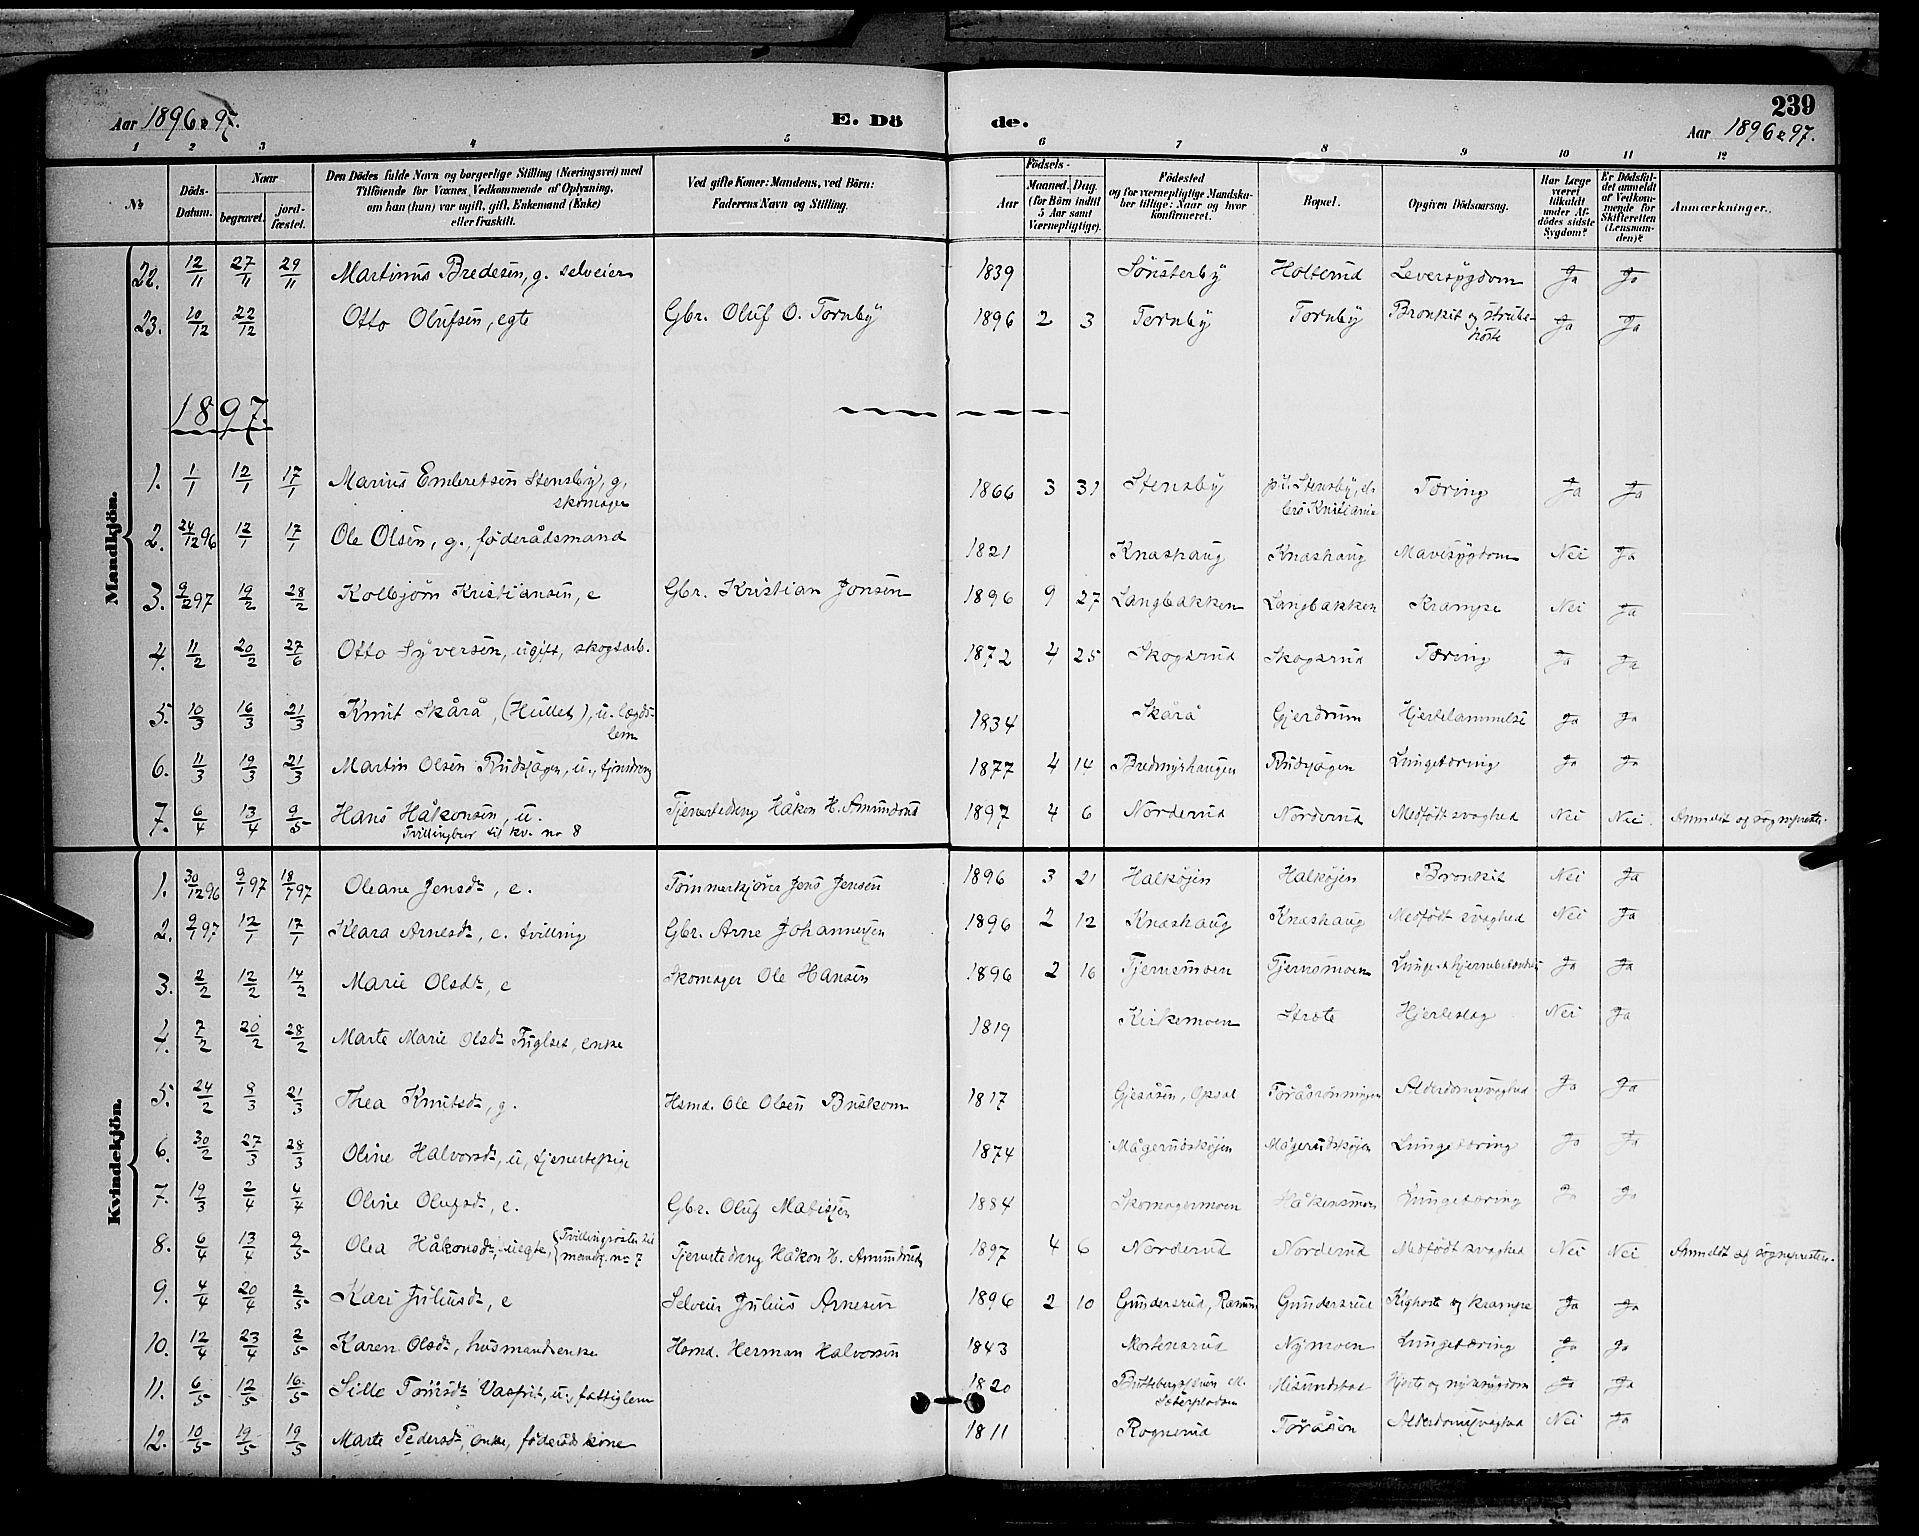 239
Aar 1896 & 97. E. Dö de. Aar 1896 & 97.
1 2 3 4 5 6 7 8 9 10 11 12
No. Döds-Datum. Naar begravet. jordfæstet. Den Dödes fulde Navn og borgerlige Stilling (Næringsvei) med Tilföiende for Voxnes Vedkommende af Oplysning, om han (hun) var ugift, gift, Enkemand (Enke) eller fraskilt. Ved gifte Koner: Mandens, ved Börn: Faderens Navn og Stilling. Födsels- Aar Maaned. Dag. (for Börn indtil 5 Aar samt Værnepligtige). Födested og for værnepligtige Mandskaber tillige: Naar og hvor konfirmeret. Bopæl. Opgiven Dödsaarsag. Har Læge været tilkaldt under Afdödes sidste Sygdom? Er Dödsfaldet anmeldt af Vedkommende for Skifteretten (Lensmanden)? Anmærkninger.
Mandkjön.
22. 12/11 27/11 29/11 Martinus Bredesen, g. selveier 1839 Sönsterby Holterud Leversygdom Ja Ja
23. 10/12 22/12 Otto Olufsen, egte Gbr. Oluf O. Tornby 1896 2 3 Tornby Tornby Bronkit og strube-
hoste Ja Ja
1897.
1. 1/1 12/1 17/1 Marius Embretsen Stensby, g,
skomager 1866 3 31 Stensby Stensby, Tæring Ja Ja
2. 24/12 96 12/1 17/1 Ole Olsen, g., föderådsmand 1821 Knashaug Knashaug Mavesygdom Nei Ja
3. 9/2 97 19/2 28/2 Kolbjörn Kristiansen, e Gbr. Kristian Jonsen 1896 9 27 Langbakken Langbakken Krampe Nei Ja
4. 11/2 20/2 27/6 Otto Syversen, ugift, skogsarb. 1872 4 25 Skogsrud Skogsrud Tæring Ja Ja
5. 10/3 16/3 21/3 Knut Skårå, (Hullet), u. lægds-
lem 1834 Skårå Gjerdrum Hjertelammelse Ja Ja
6. 11/3 19/3 21/3 Martin Olsen Rudsjøgen, u., tjendreng 1877 4 14 Lungetæring Ja Ja
7. 6/4 13/4 9/5 Hans Håkonsen, u.
Tvillingbror til kv. no 8 Tjenestedreng Håkon H. Amundrud 1897 4 6 Norderud Norderud Medfödt svaghed Nei Nei. Anmeldt af sognepresten.
Kvindekjön.
1. 30/12 96 9/1 97 18/1 97 Oleane Jensdr, e. Tömmerkjörer Jens Jensen 1896 3 21 Halköjen Halköjen Bronkit Nei Ja
2. 9/1 97 12/1 17/1 Klara Arnesdr, e. tvilling Gbr. Arne Johannesen 1896 2 12 Knashaug Knashaug Medfödt svaghed Nei Ja
3. 2/2 12/2 14/2 Marie Olsdr, e Skomager Ole Hansen 1896 2 16 Tjernsmoen Tjernsmoen Ja Ja
4. 7/2 20/2 28/2 Marte Marie Olsdr Fuglset, enke 1819 Kirkemoen Strote Hjerteslag Nei Ja
5. 24/2 8/3 21/3 Thea Knutsdr, g. Hsmd. Ole Olsen Buskom 1817 Gjesåsen, Opsal Toråsrönningen Alderdomssvaghed Ja Ja
6. 30/2 27/3 28/3 Oline Halvorsdr, u, tjenestepige 1874 Magerudsköjen Magerudsköjen Lungetæring Ja Ja
7. 19/3 2/4 4/4 Oline Olufsdr, e. Gbr. Oluf Matisen 1884 Skomagermoen Håkensmoen Lungetæring Ja Ja
8. 6/4 13/4 9/5 Olea Håkonsdr, uegte, Tvillingsöster til
mandk. no 7 Tjenestedreng Håkon H. Amundrud 1897 4 6 Norderud Norderud Medfödt svaghed Nei Nei Anmeldt af sognepresten.
9. 4/4 20/4 2/5 Kari Juliusdr, e Selveier Julius Arnesen 1896 2 10 Gundersrud, Gundersrud Kighoste og krampe Ja Ja
10. 12/4 23/4 2/5 Karen Olsdr, husmandsenke Hsmd. Herman Halvorsen 1843 Mortensrud Nymoen Lungetæring Ja Ja
11. 6/5 12/5 16/5 Sille Tomsdr u, fattiglem 1820 Misundstad Hjerte og nyresygdom Ja Ja
12. 10/5 19/5 19/5 Marte Pedersdr, enke, föderådskone 1811 Rognerud Toråsen Alderdomssvaghed Nei Ja